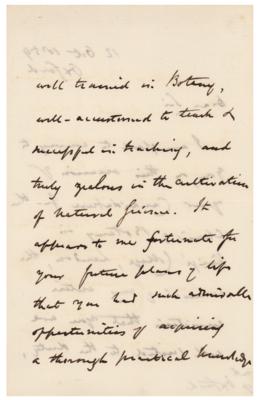 well trained in Botany,
well-accustomed to teach &
successful in teaching, and
truly zealous in the cultivation
of Natural Science. It
appears to me fortunate for
your future plans of life
that you had such admirable
opportunities of acquiring
a thorough practical knowledge